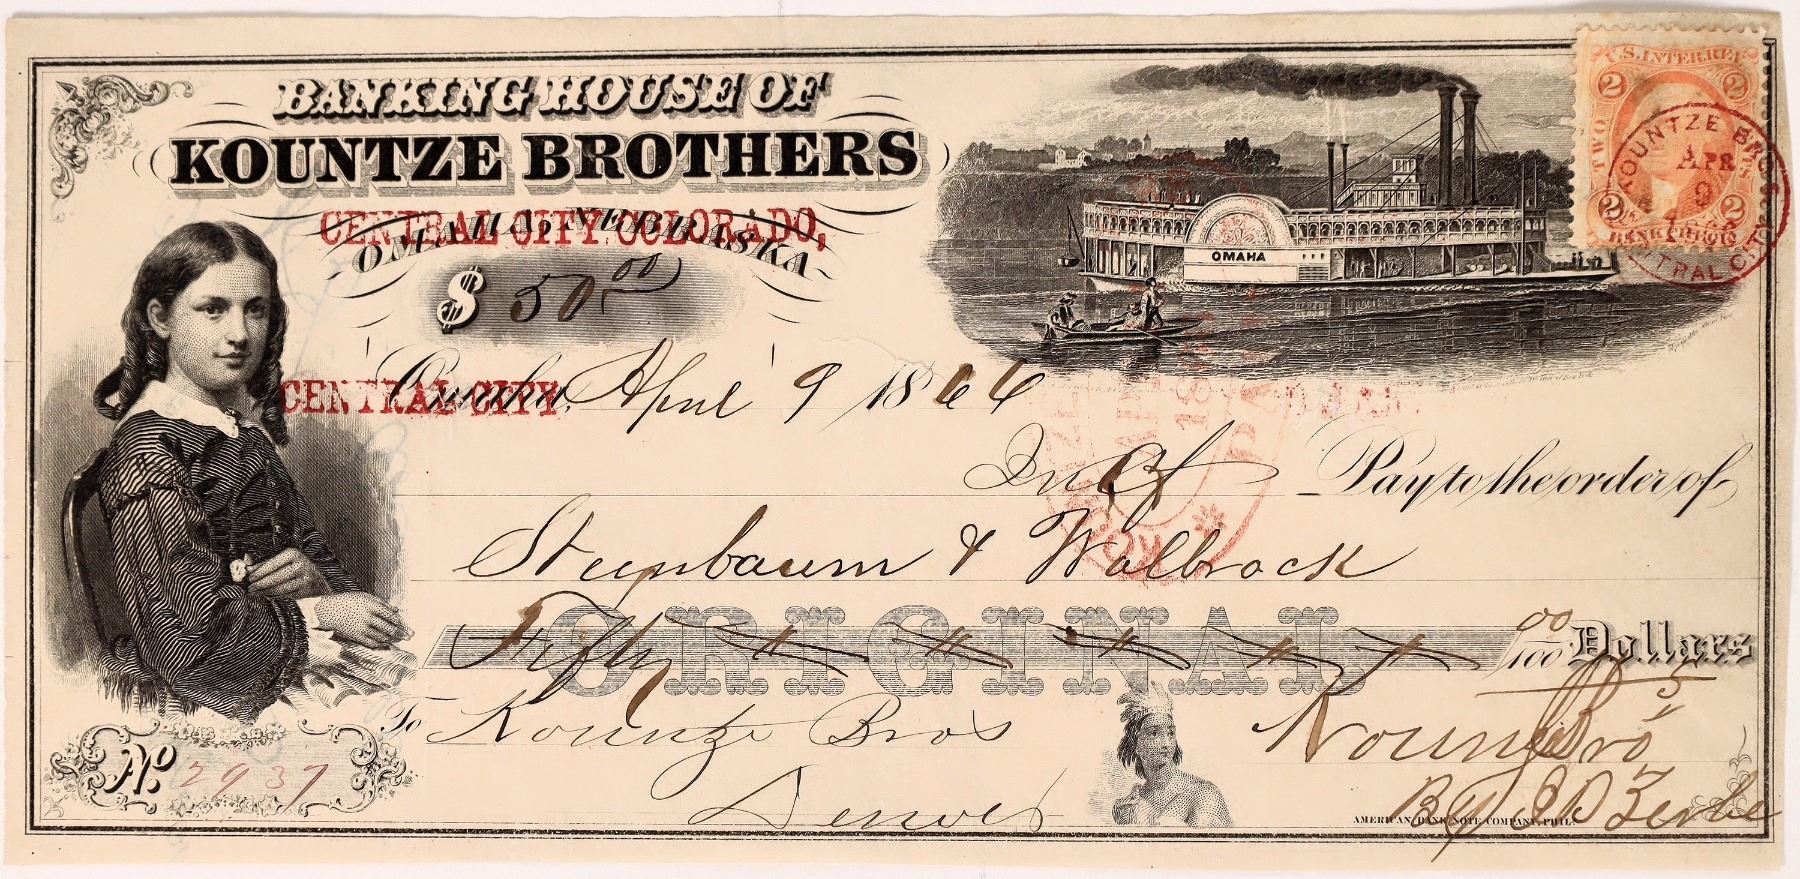 BANKING HOUSE OF
KOUNTZE BROTHERS
CENTRAL CITY COLORADO,
OMAHA, NEBRASKA
$ 50.00
OMAHA
U.S. INTER. REV.
2 2
TWO CTS
2 2
BANK CHECK
KOUNTZE BROS
APR
9
CENTRAL CITY
CENTRAL CITY
Omaha, April 9 1866
Pay to the order of
Steinbaum & Walbrach
ORIGINAL
Fifty 00/100 Dollars
To Kountze Bros
Denver
Kountze Bros
No. 2937
AMERICAN BANK NOTE COMPANY, PHIL.